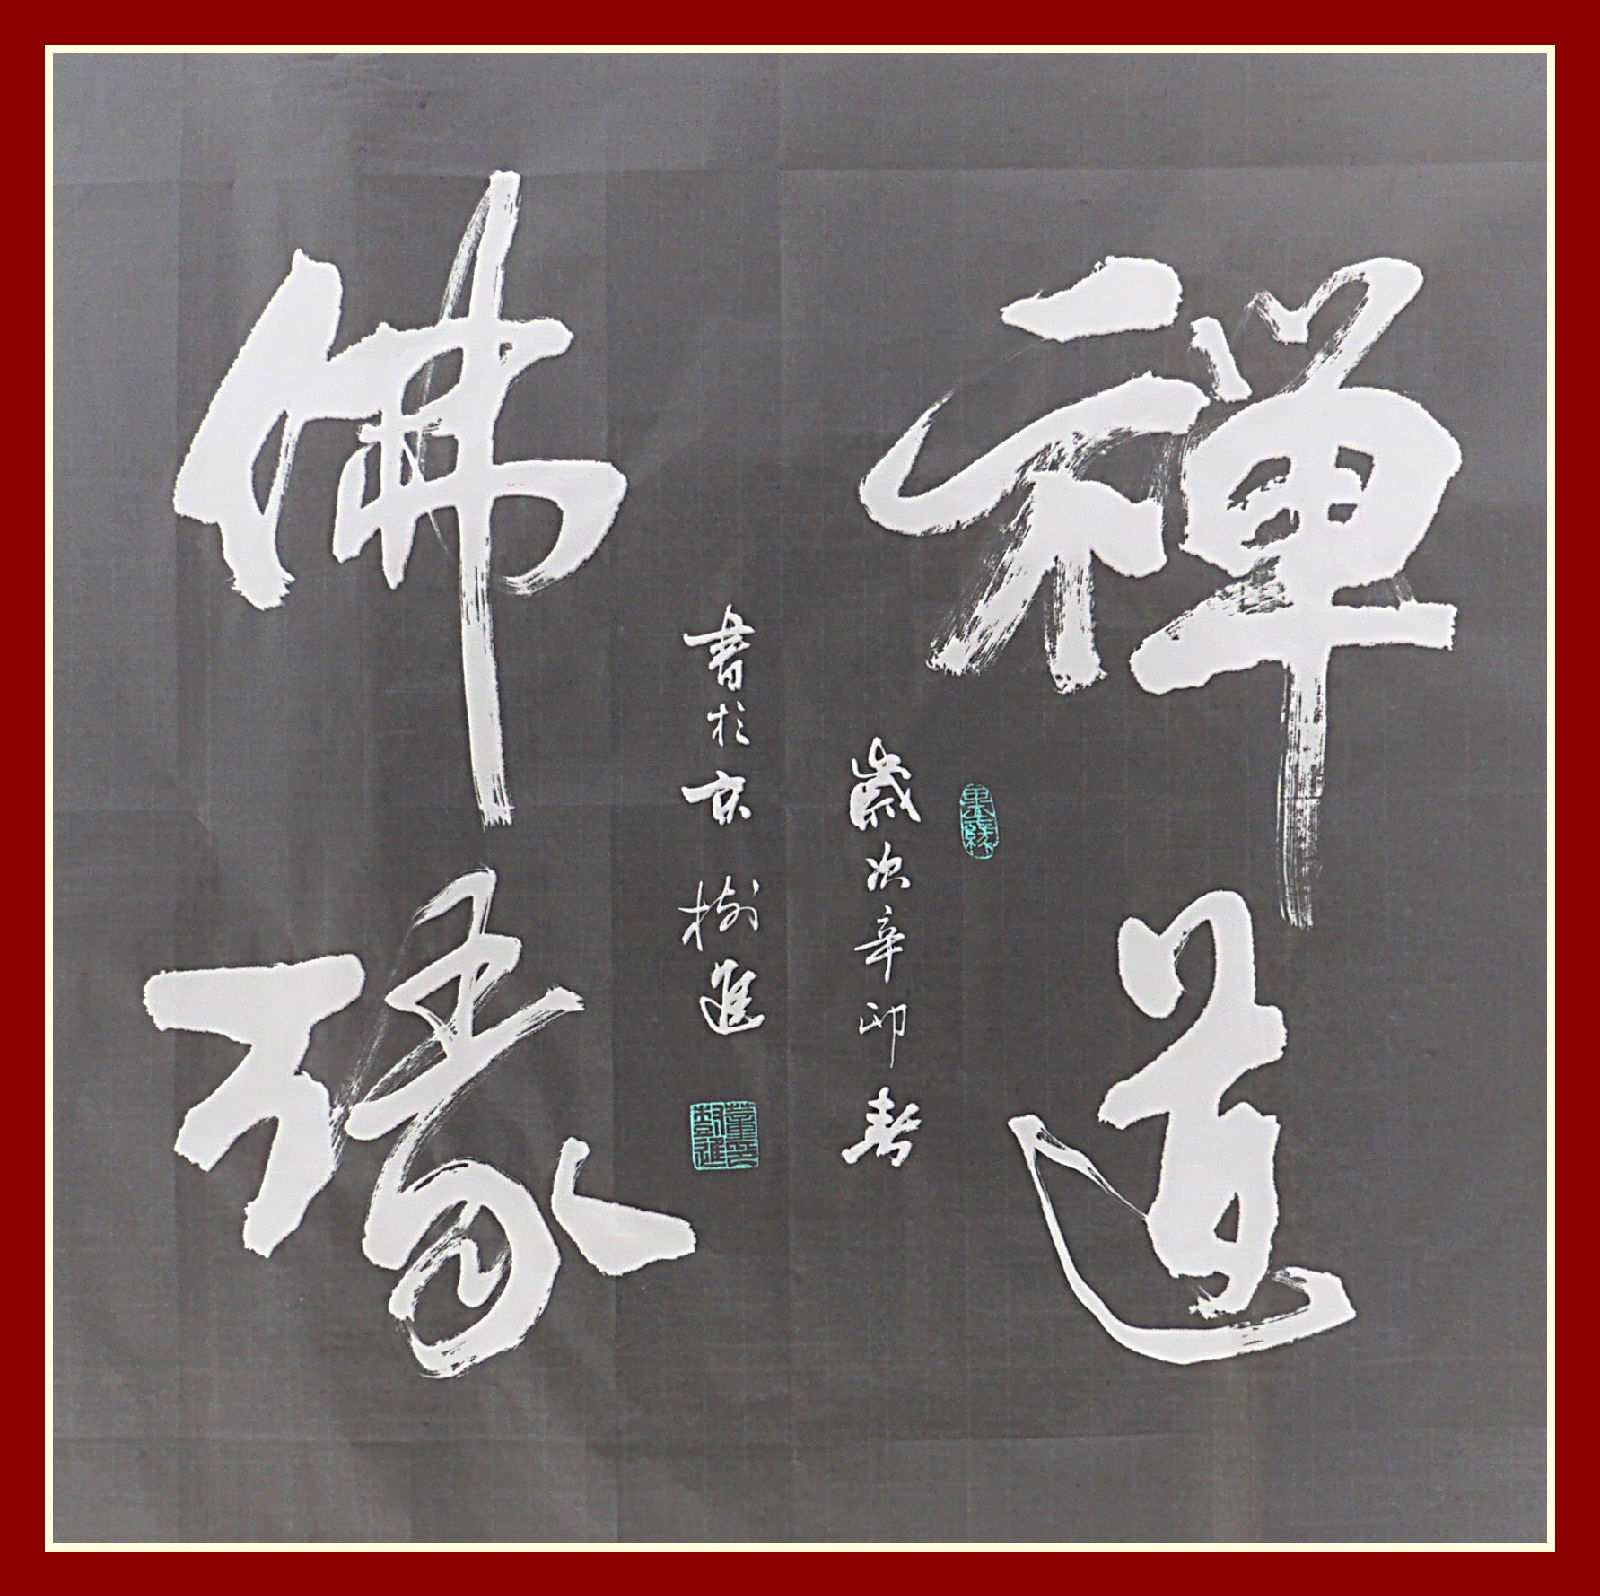 禪道
佛緣
歲次辛卯春
書於京 樹進